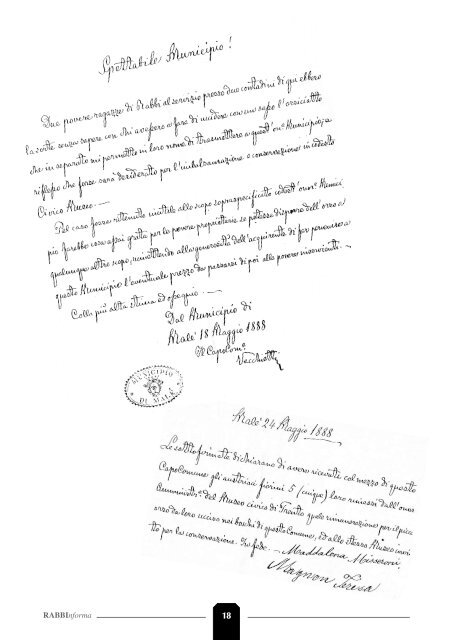 Spettabile Municipio!
Due povere ragazze di Rabbi al servizio presso due contadini di qui ebbero
la sorte senza sapere con chi avessero a fare di uccidere con un sasso l'orsicciotto
che in separato mi permetto in loro nome di trasmettere a quest'on. Municipio, a
riflesso che forse sarà desiderato per l'imbalsamazione e conservazione in codesto
Civico Museo.
Pel caso fosse ritenuto inutile allo scopo sopraspecificato codest'onor. Munici
pio farebbe cosa assai grata per le povere proprietarie se potesse disporre dell'orso a
qualunque altro scopo, rimettendo alla generosità dell'acquirente di far pervenire a
questo Municipio l'eventuale prezzo da passarsi di poi alle povere
Colla più alta stima ed ossequio.
Dal Municipio di
Malè 18 Maggio 1888
Il Capocom.º
MUNICIPIO
DI MALÈ
Malè 24 Maggio 1888
Le sottofirmate dichiarano di avere ricevuti col mezzo di questo
Capocomune gli austriaci fiorini 5 (cinque) loro rimessi dall'onor
Amministr.e del Museo civico di Trento quale rimunerazione per il picco
orso da loro ucciso nei boschi di questo Comune, ed allo stesso Museo invia
to per la conservazione. In fede. Maddalena Misseroni
Magnon Teresa
RABBInforma
18